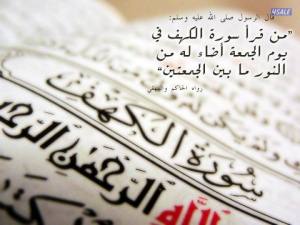 4SALE
قال الرسول صلى الله عليه وسلم:
"من قرأ سورة الكهف في
يوم الجمعة أضاء له من
النور ما بين الجمعتين"
رواه الحاكم والبيهقي
سورة الكهف
الرحمن الرحيم
الله